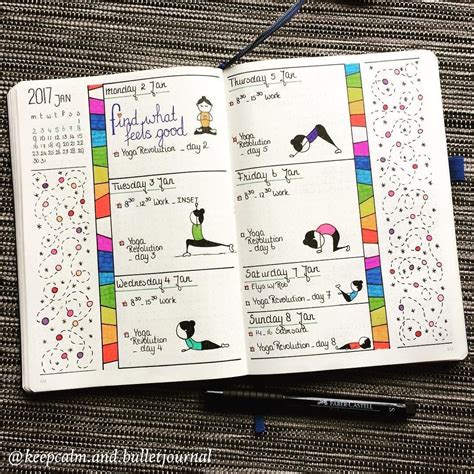 2017 JAN
m t w t f s s
1
2 3 4 5 6 7 8
9 10 11 12 13 14 15
16 17 18 19 20 21 22
23 24 25 26 27 28 29
30 31
Monday 2 Jan
8³⁰ - 15³⁰ Work
find what
feels good
Yoga Revolution - day 2
Tuesday 3 Jan
8³⁰ - 12³⁰ Work → INSET
Yoga
Revolution
- day 3
Wednesday 4 Jan
8³⁰ - 15³⁰ Work
Yoga
Revolution -
day 4
Thursday 5 Jan
8³⁰ - 15³⁰ Work
Yoga
Revolution -
day 5
Friday 6 Jan
8³⁰ - 15³⁰ Work
Yoga
Revolution
- day 6
Saturday 7 Jan
Yoga Revolution - day 7
Sunday 8 Jan
14 - 16
Yoga Revolution - day 8
FABER-CASTELL
S
@keepcalm.and.bulletjournal